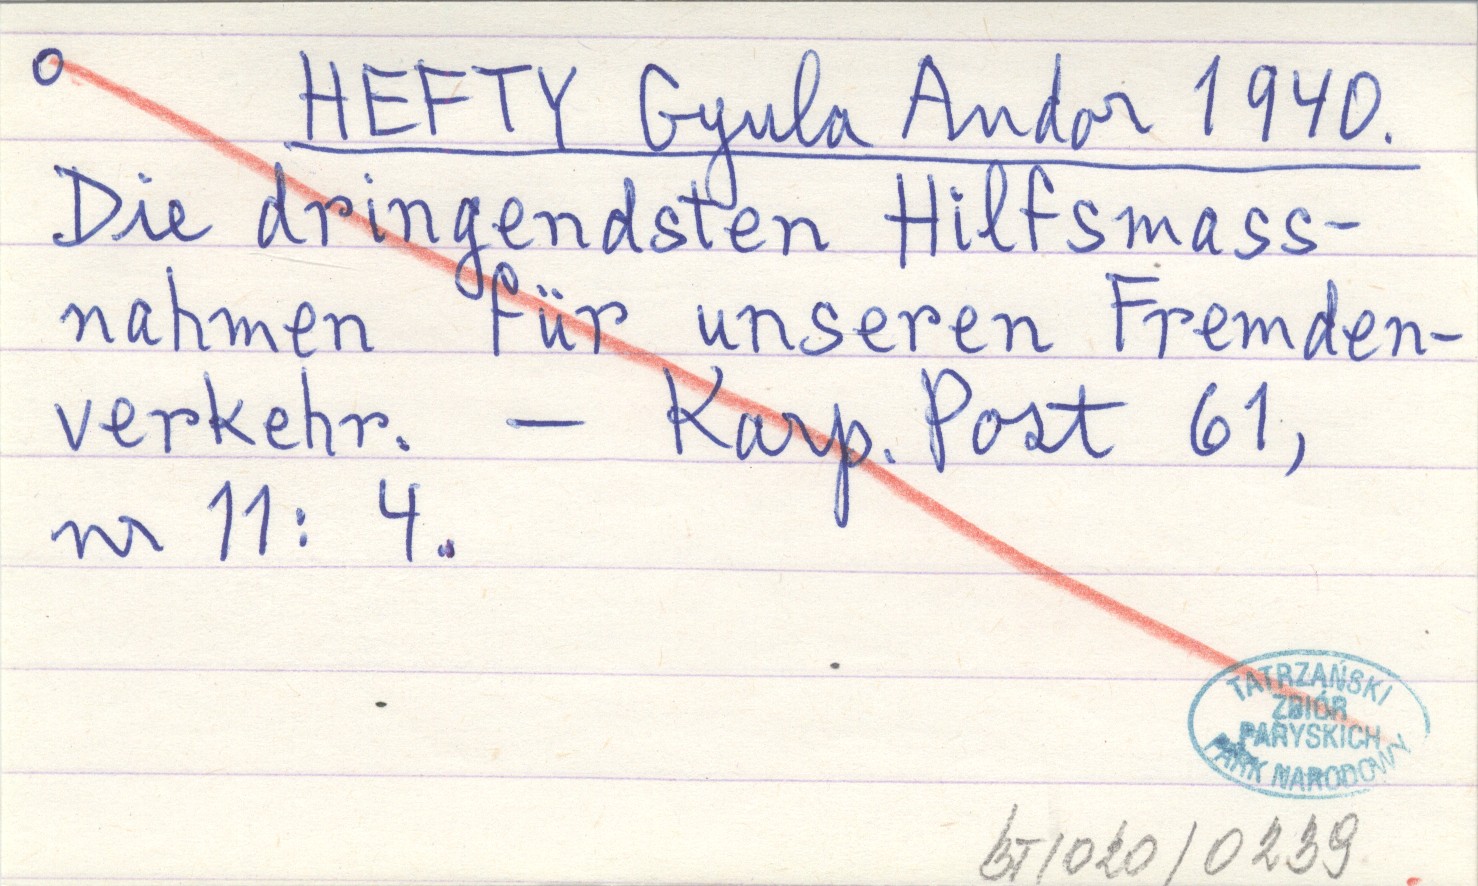 o HEFTY Gyula Andor 1940.
Die dringendsten Hilfsmass-
nahmen für unseren Fremden-
verkehr. — Karp. Post 61,
nr 11: 4.
TATRZAŃSKI
ZBIÓR
PARYSKICH
PARK NARODOWY
BT/020/0239